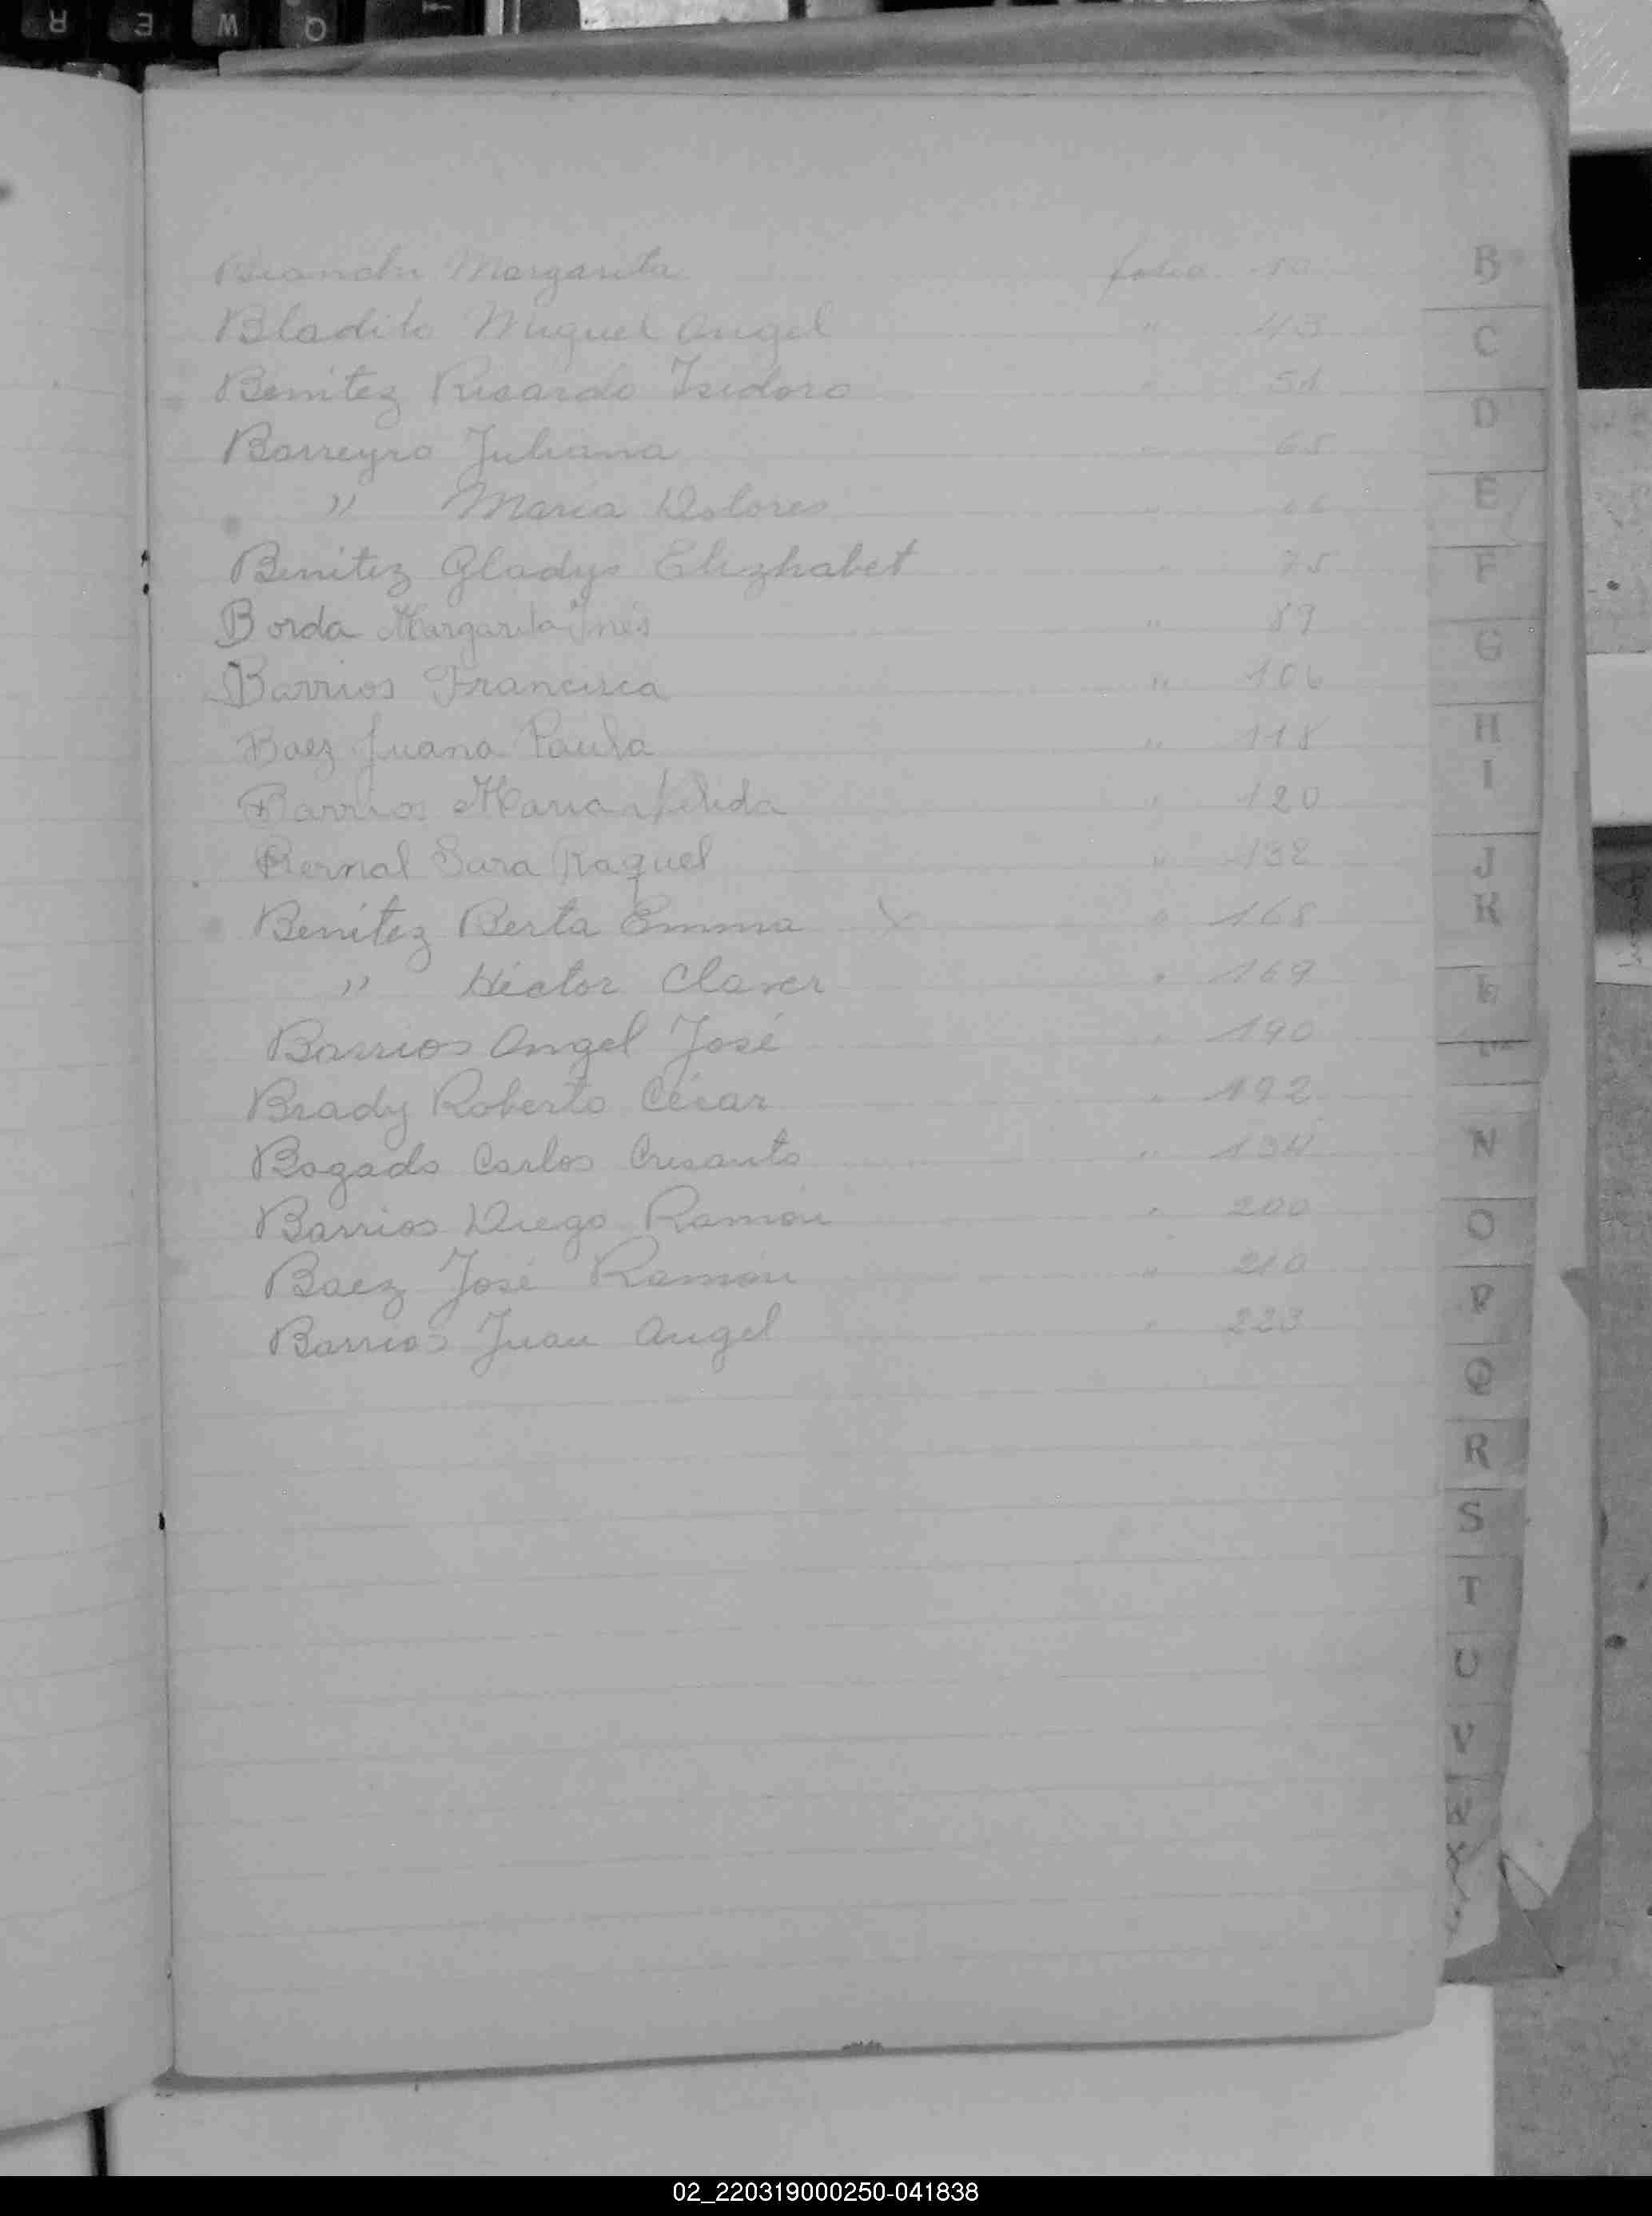 Bianchi Margarita folio 10
Bladilo Miguel Angel " 43
Benitez Ricardo Isidoro " 51
Barreyro Juliana " 65
" Maria Dolores " 66
Benitez Gladys Elizhabet " 75
Borda Margarita Inés " 89
Barrios Francisca " 106
Baez Juana Paula " 118
Barrios Maria Nelida " 120
Bernal Sara Raquel " 132
Benitez Berta Emma X " 168
" Héctor Claver " 169
Barrios Angel José " 190
Brady Roberto César " 192
Bogado Carlos Crisanto " 194
Barrios Diego Ramón " 200
Baez José Ramón " 210
Barrios Juan Angel " 223
B
C
D
E
F
G
H
I
J
K
L
N
O
P
Q
R
S
T
U
V
X
02_220319000250-041838